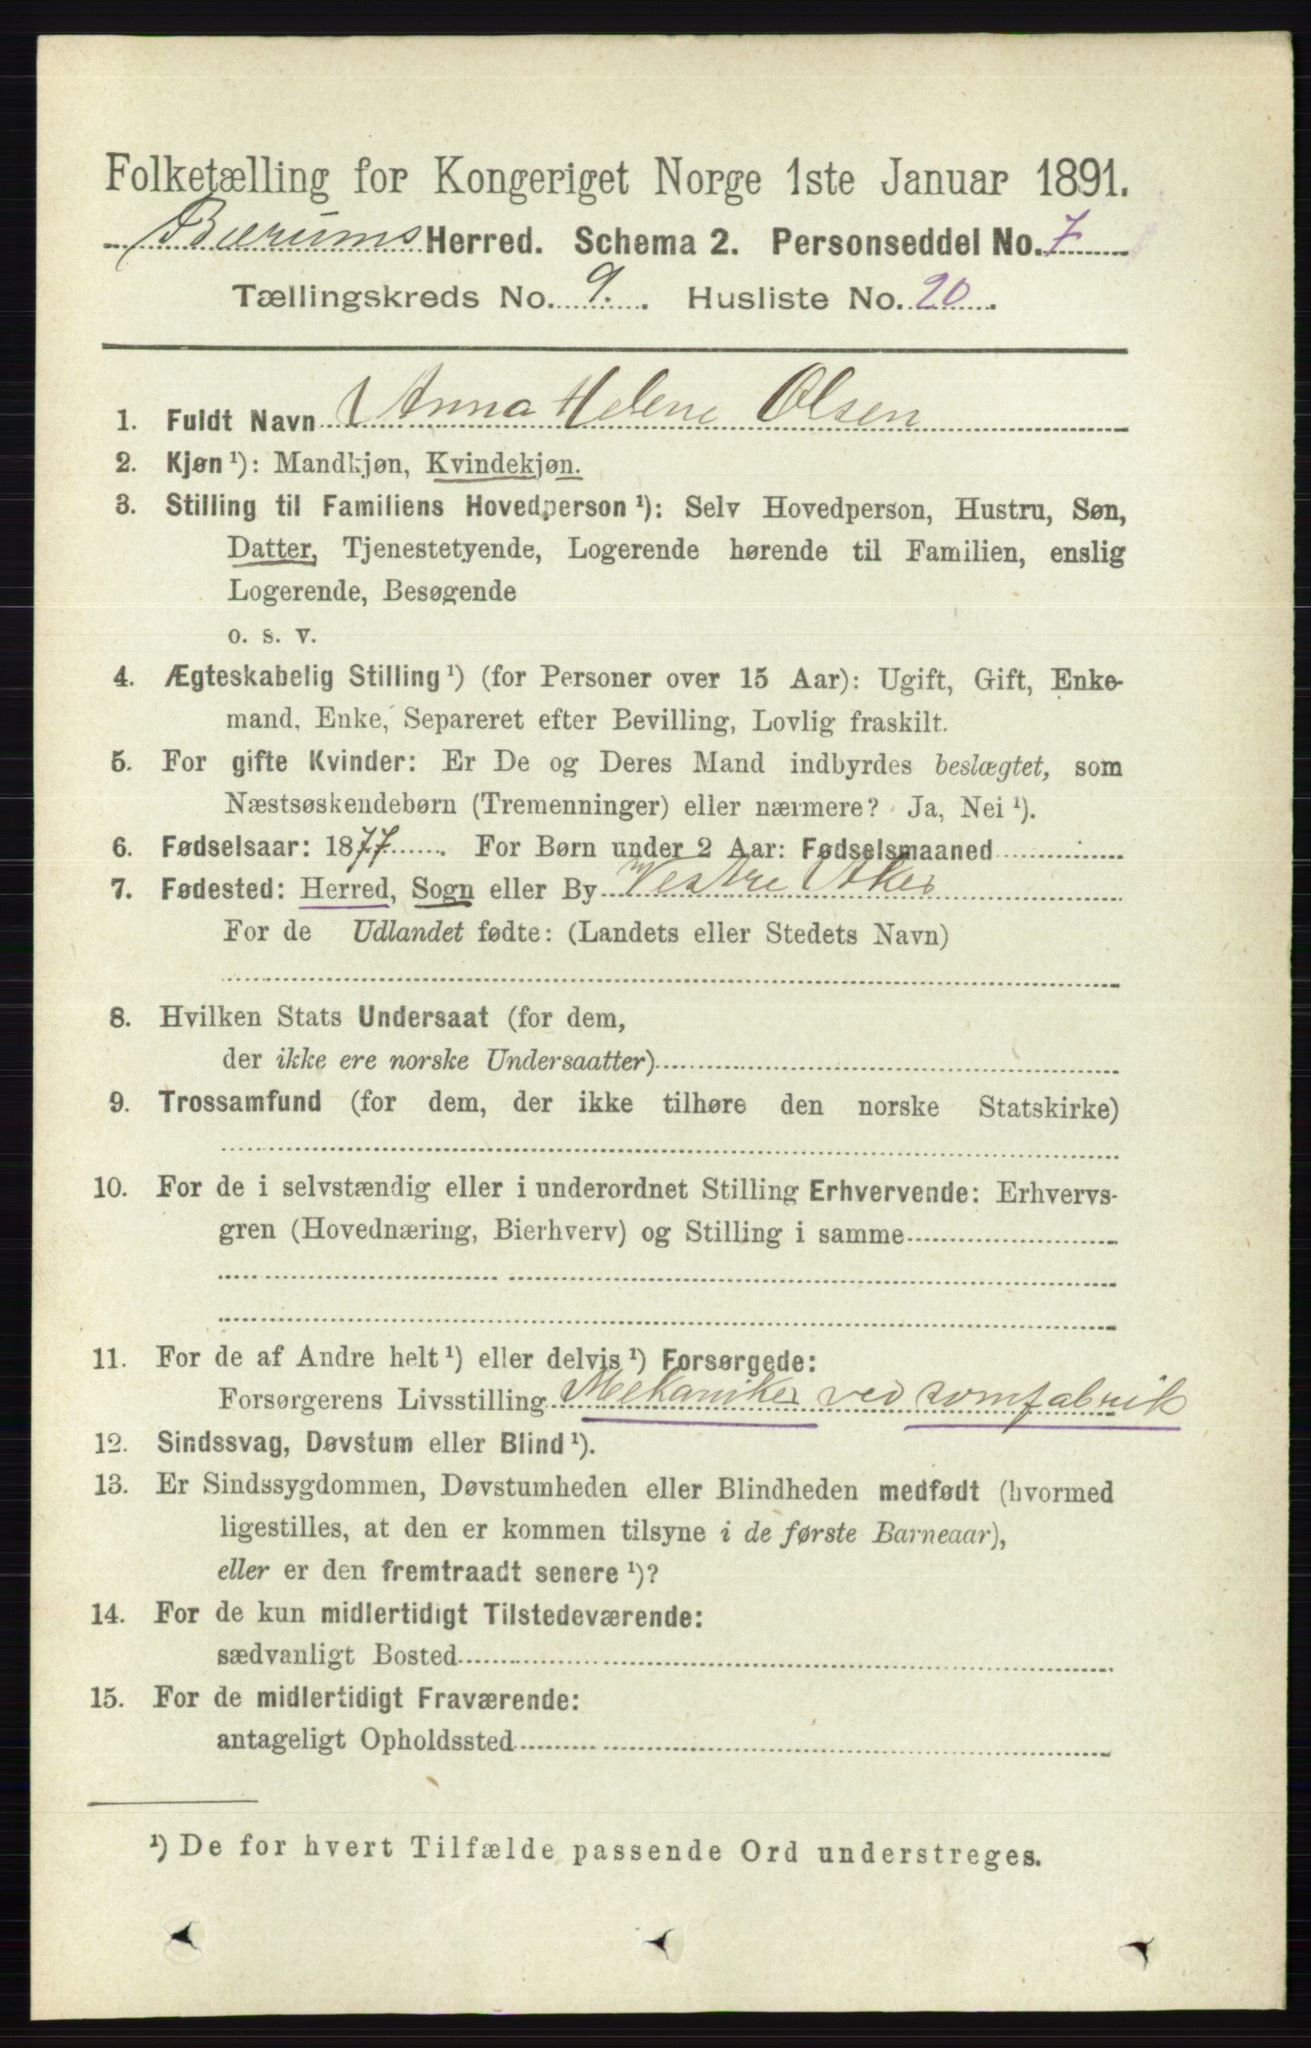 Folketælling for Kongeriget Norge 1ste Januar 1891.
Bærums Herred. Schema 2. Personseddel No. 7
Tællingskreds No. 9. Husliste No. 20
1. Fuldt Navn Anna Helene Olsen
2. Kjøn ¹): Mandkjøn, Kvindekjøn.
3. Stilling til Familiens Hovedperson ¹): Selv Hovedperson, Hustru, Søn,
Datter, Tjenestetyende, Logerende hørende til Familien, enslig
Logerende, Besøgende
o. s. v.
4. Ægteskabelig Stilling ¹) (for Personer over 15 Aar): Ugift, Gift, Enke-
mand, Enke, Separeret efter Bevilling, Lovlig fraskilt.
5. For gifte Kvinder: Er De og Deres Mand indbyrdes beslægtet, som
Næstsøskendebørn (Tremenninger) eller nærmere? Ja, Nei ¹).
6. Fødselsaar: 1877. For Børn under 2 Aar: Fødselsmaaned
7. Fødested: Herred, Sogn eller By Vestre Aker
For de Udlandet fødte: (Landets eller Stedets Navn)
8. Hvilken Stats Undersaat (for dem,
der ikke ere norske Undersaatter)
9. Trossamfund (for dem, der ikke tilhøre den norske Statskirke)
10. For de i selvstændig eller i underordnet Stilling Erhvervende: Erhvervs-
gren (Hovednæring, Bierhverv) og Stilling i samme
11. For de af Andre helt ¹) eller delvis ¹) Forsørgede:
Forsørgerens Livsstilling Mekaniker ved somfabrik
12. Sindssvag, Døvstum eller Blind ¹).
13. Er Sindssygdommen, Døvstumheden eller Blindheden medfødt (hvormed
ligestilles, at den er kommen tilsyne i de første Barneaar),
eller er den fremtraadt senere ¹)?
14. For de kun midlertidigt Tilstedeværende:
sædvanligt Bosted
15. For de midlertidigt Fraværende:
antageligt Opholdssted
¹) De for hvert Tilfælde passende Ord understreges.